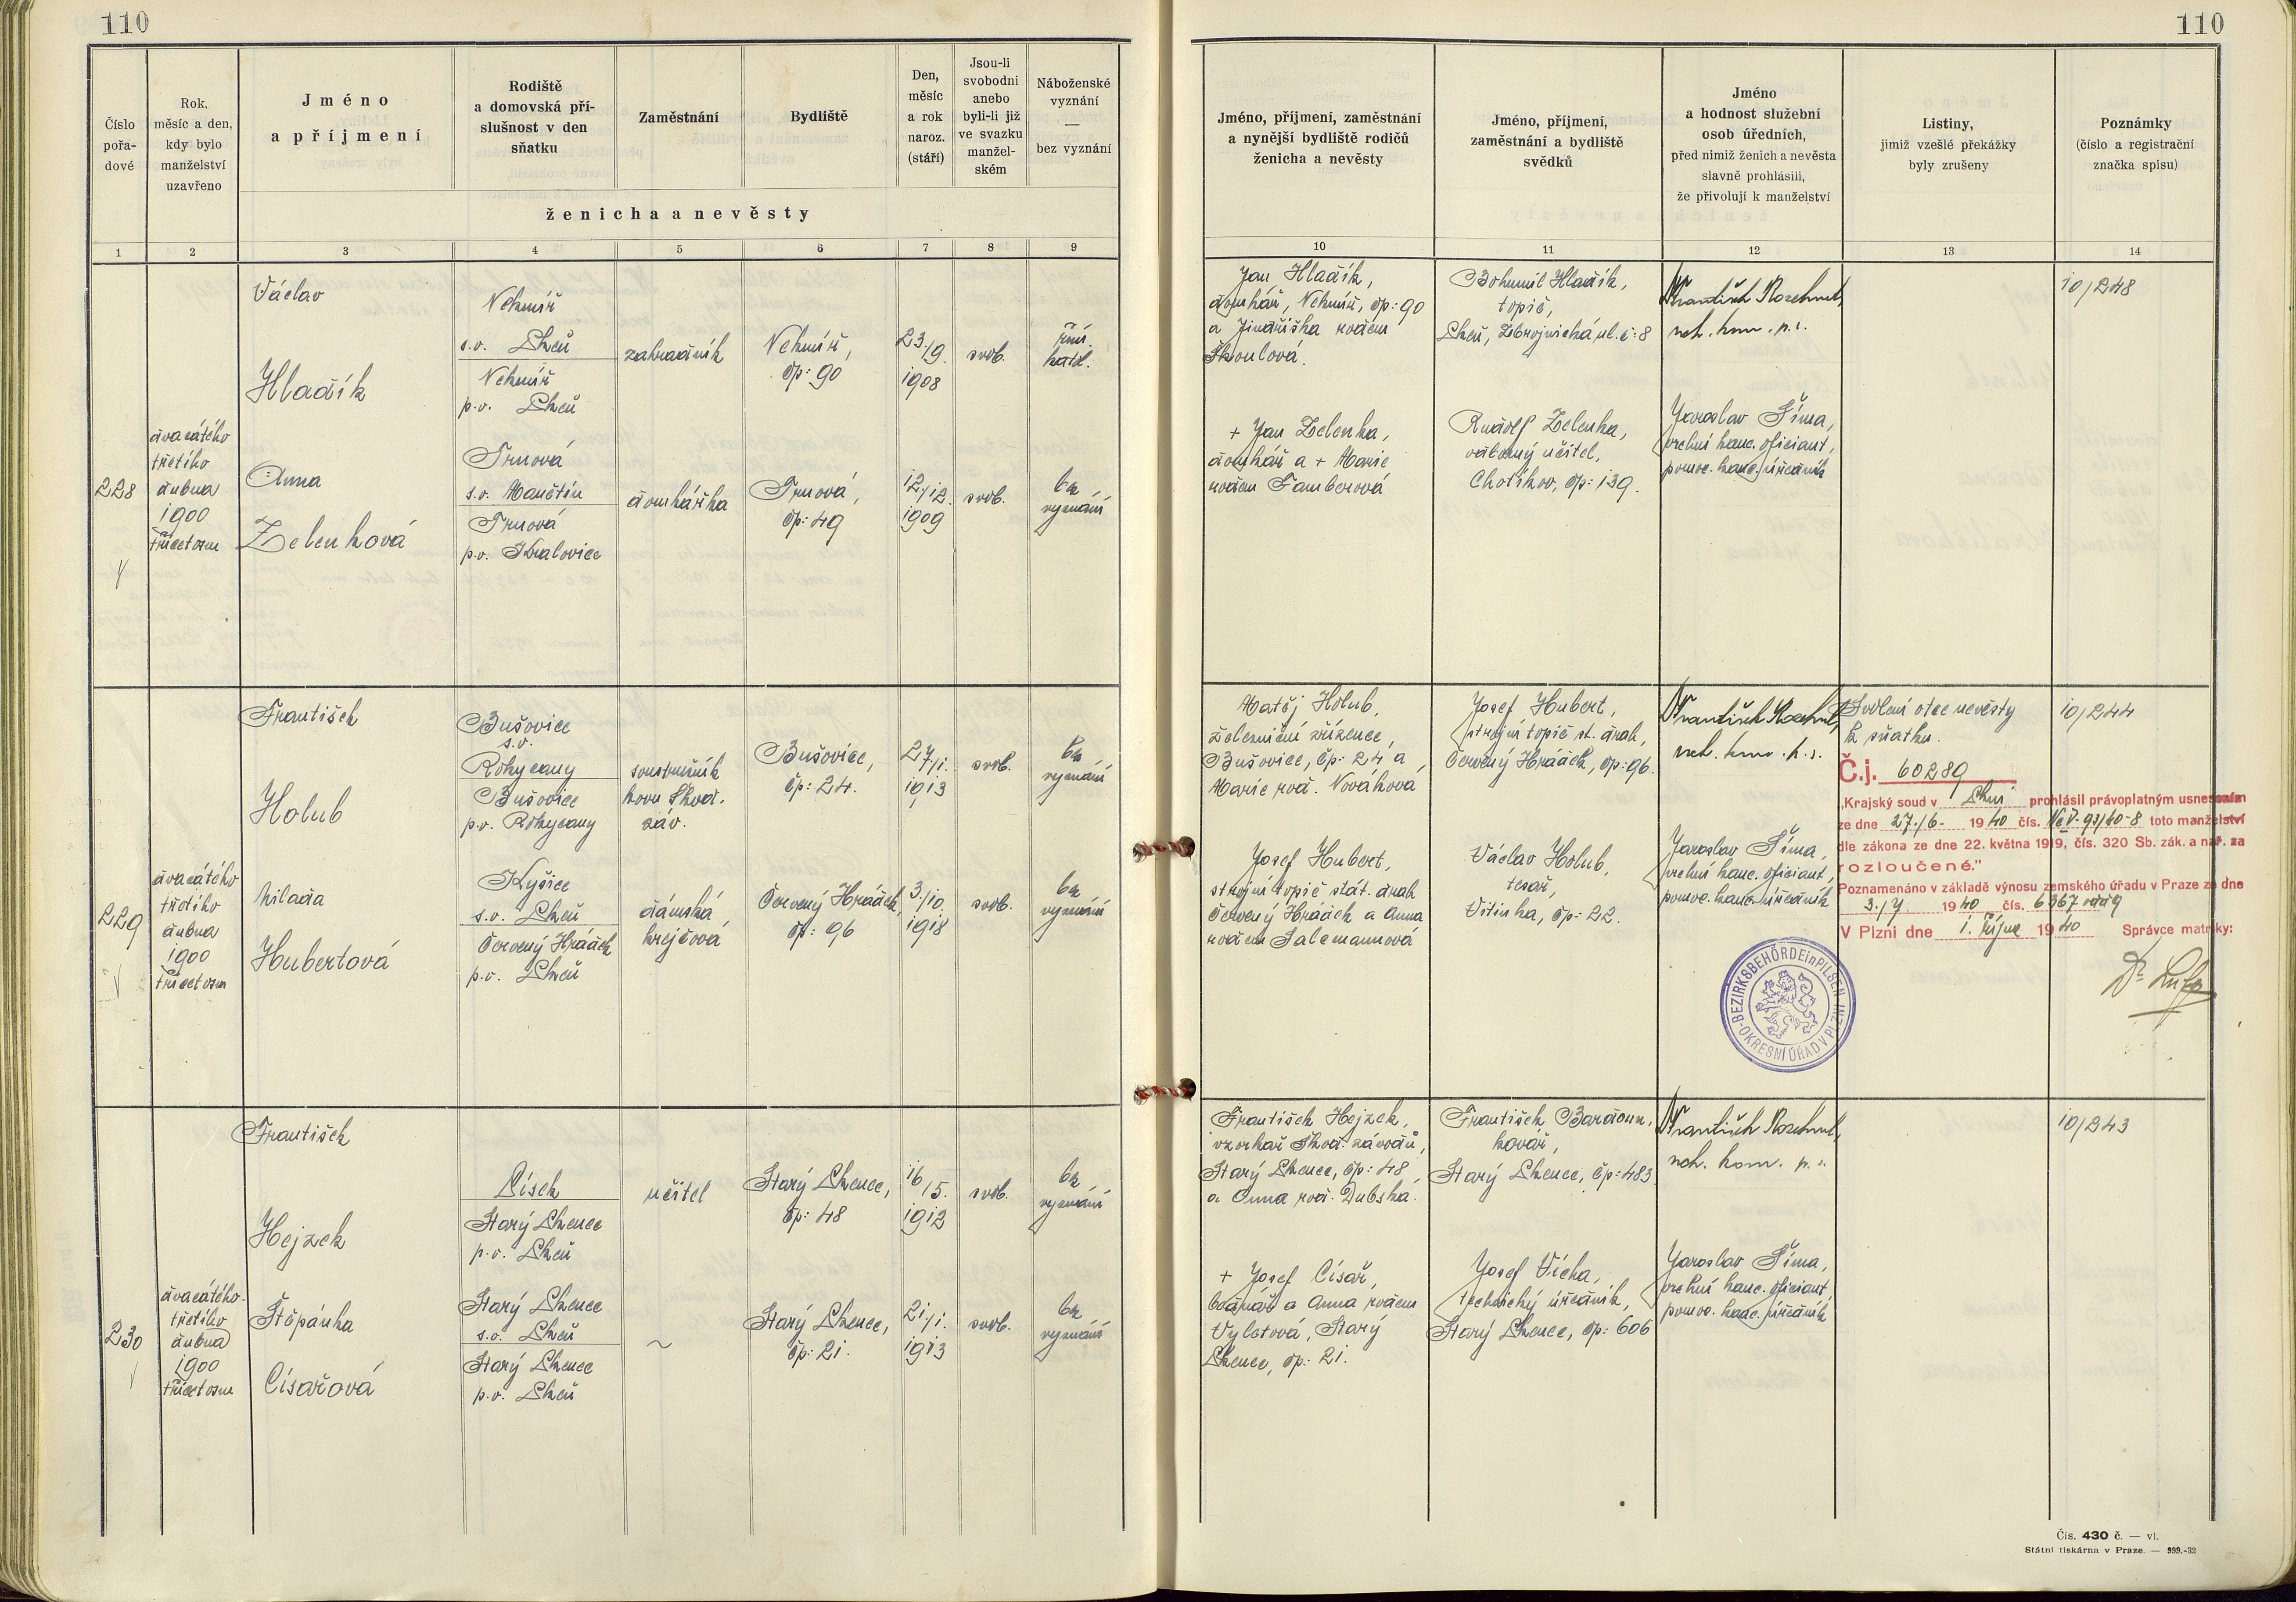 110
110
Číslo
pořa-
dové
Rok,
měsíc a den,
kdy bylo
manželství
uzavřeno
Jméno
a příjmení
Rodiště
a domovská pří-
slušnost v den
sňatku
Zaměstnání
Bydliště
Den,
měsíc
a rok
naroz.
(stáří)
Jsou-li
svobodni
anebo
byli-li již
ve svazku
manžel-
ském
Náboženské
vyznání
—
bez vyznání
ženicha a nevěsty
Jméno, příjmení, zaměstnání
a nynější bydliště rodičů
ženicha a nevěsty
Jméno, příjmení,
zaměstnání a bydliště
svědků
Jméno
a hodnost služební
osob úředních,
před nimiž ženich a nevěsta
slavně prohlásili,
že přivolují k manželství
Listiny,
jimiž vzešlé překážky
byly zrušeny
Poznámky
(číslo a registrační
značka spisu)
1 2 3 4 5 6 7 8 9 10 11 12 13 14
228
dvacátého
třetího
dubna
1900
třicetosm
Václav
Hladík
Nekmíř
s.o. Plzeň
Nekmíř
p.o. Plzeň
zahradník
Nekmíř,
čp: 90
23./9.
1908
svob.
řím.
katol.
Anna
Zelenková
Trnová
s.o. Manětín
Trnová
p.o. Kralovice
domkářka
Trnová,
čp: 49
12./12.
1909
svob.
bez
vyznání
Jan Hladík,
domkář, Nekmíř, čp: 90
a Jindřiška rozem
Škoulová.
+ Jan Zelenka,
domkář a + Marie
rozem Tamberová
Bohumil Hladík,
topič,
Plzeň, Zbrojnická ul. č: 8
Rudolf Zelenka,
odborný učitel,
Chotíkov, čp: 139.
František Rozehnal,
Jaroslav Šíma,
vrchní kanc. oficiant,
pomoc. kanc. úředník
10/248
229
dvacátého
třetího
dubna
1900
třicetosm
František
Holub
Bušovice
s.o.
Rokycany
Bušovice
p.o. Rokycany
soustružník
kovu Škod.
záv.
Bušovice,
čp: 24.
27/1.
1913
svob.
bez
vyznání
Milada
Hubertová
Kyšice
s.o. Plzeň
Červený Hrádek
p.o. Plzeň
dámská
krejčová
Červený Hrádek,
čp: 96
3./10.
1918
svob.
bez
vyznání
Matěj Holub,
železniční zřízenec,
Bušovice, čp: 24 a
Marie roz. Nováková
Josef Hubert,
strojní topič stát. drah
Červený Hrádek a Anna
rozem Salcmannová
Josef Hubert,
strojní topič st. drah,
Červený Hrádek, čp: 96.
Václav Holub,
tesař,
Litinka, čp: 22.
František Rozehnal,
Jaroslav Šíma,
vrchní kanc. oficiant,
pomoc. kanc. úředník
Svolení otce nevěsty
k sňatku.
10/244
Č.j. 60289
„Krajský soud v Plzni prohlásil právoplatným usnesením
ze dne 27./6. 1940 čís. Nc V-93/40-8 toto manželství
dle zákona ze dne 22. května 1919, čís. 320 Sb. zák. a nař. za
rozloučené."
Poznamenáno v základě výnosu zemského úřadu v Praze ze dne
1940 čís.
V Plzni dne 1. října 1940 Správce matriky:
BEZIRKSBEHÖRDE in PILSEN
OKRESNÍ ÚŘAD V PLZNI
230
dvacátého
třetího
dubna
1900
třicetosm
František
Hejzek
Písek
Starý Plzenec
p.o. Plzeň
učitel
Starý Plzenec,
čp: 48
16/5.
1912
svob.
bez
vyznání
Štěpánka
Císařová
Starý Plzenec
s.o. Plzeň
Starý Plzenec
p.o. Plzeň
~
Starý Plzenec,
čp: 21.
21/1.
1913
svob.
bez
vyznání
František Hejzek,
vzorkař Škod. závodů,
Starý Plzenec, čp: 48,
a Anna roz. Dubská.
+ Josef Císař,
bednář a Anna rozem
Vyletová, Starý
Plzenec, čp: 21.
František Bardoun,
kovář,
Starý Plzenec, čp: 483
Josef Vícha,
technický úředník,
Starý Plzenec, čp: 606
František Rozehnal,
Jaroslav Šíma,
vrchní kanc. oficiant,
pomoc. kanc. úředník
10/243
Čís. 430 č. — vl.
Státní tiskárna v Praze. — 999.-32